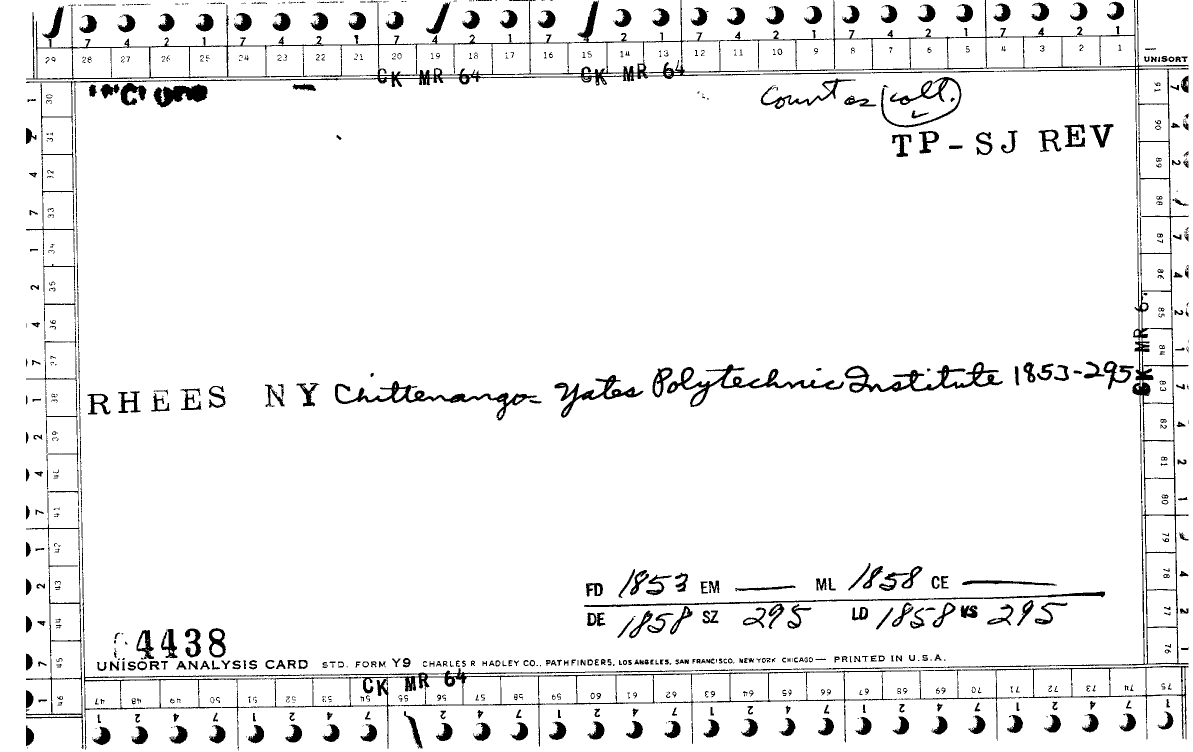 1 7 4 2 1 7 4 2 1 7 4 2 1 7 4 2 1 7 4 2 1 7 4 2 1
29 28 27 26 25 24 23 22 21 20 19 18 17 16 15 14 13 12 11 10 9 8 7 6 5 4 3 2 1
UNISORT
CK MR 64 CK MR 64
Count as coll.
TP-SJ REV
RHEES NY Chittenango= Yates Polytechnic Institute 1853-295
CK MR 6
FD 1853 EM — ML 1858 CE —
DE 1858 SZ 295 LD 1858 VS 295
4438
UNISORT ANALYSIS CARD STD. FORM Y9 CHARLES R HADLEY CO., PATHFINDERS, LOS ANGELES, SAN FRANCISCO, NEW YORK CHICAGO— PRINTED IN U.S.A.
CK MR 64
47 48 49 50 51 52 53 54 55 56 57 58 59 60 61 62 63 64 65 66 67 68 69 70 71 72 73 74 75